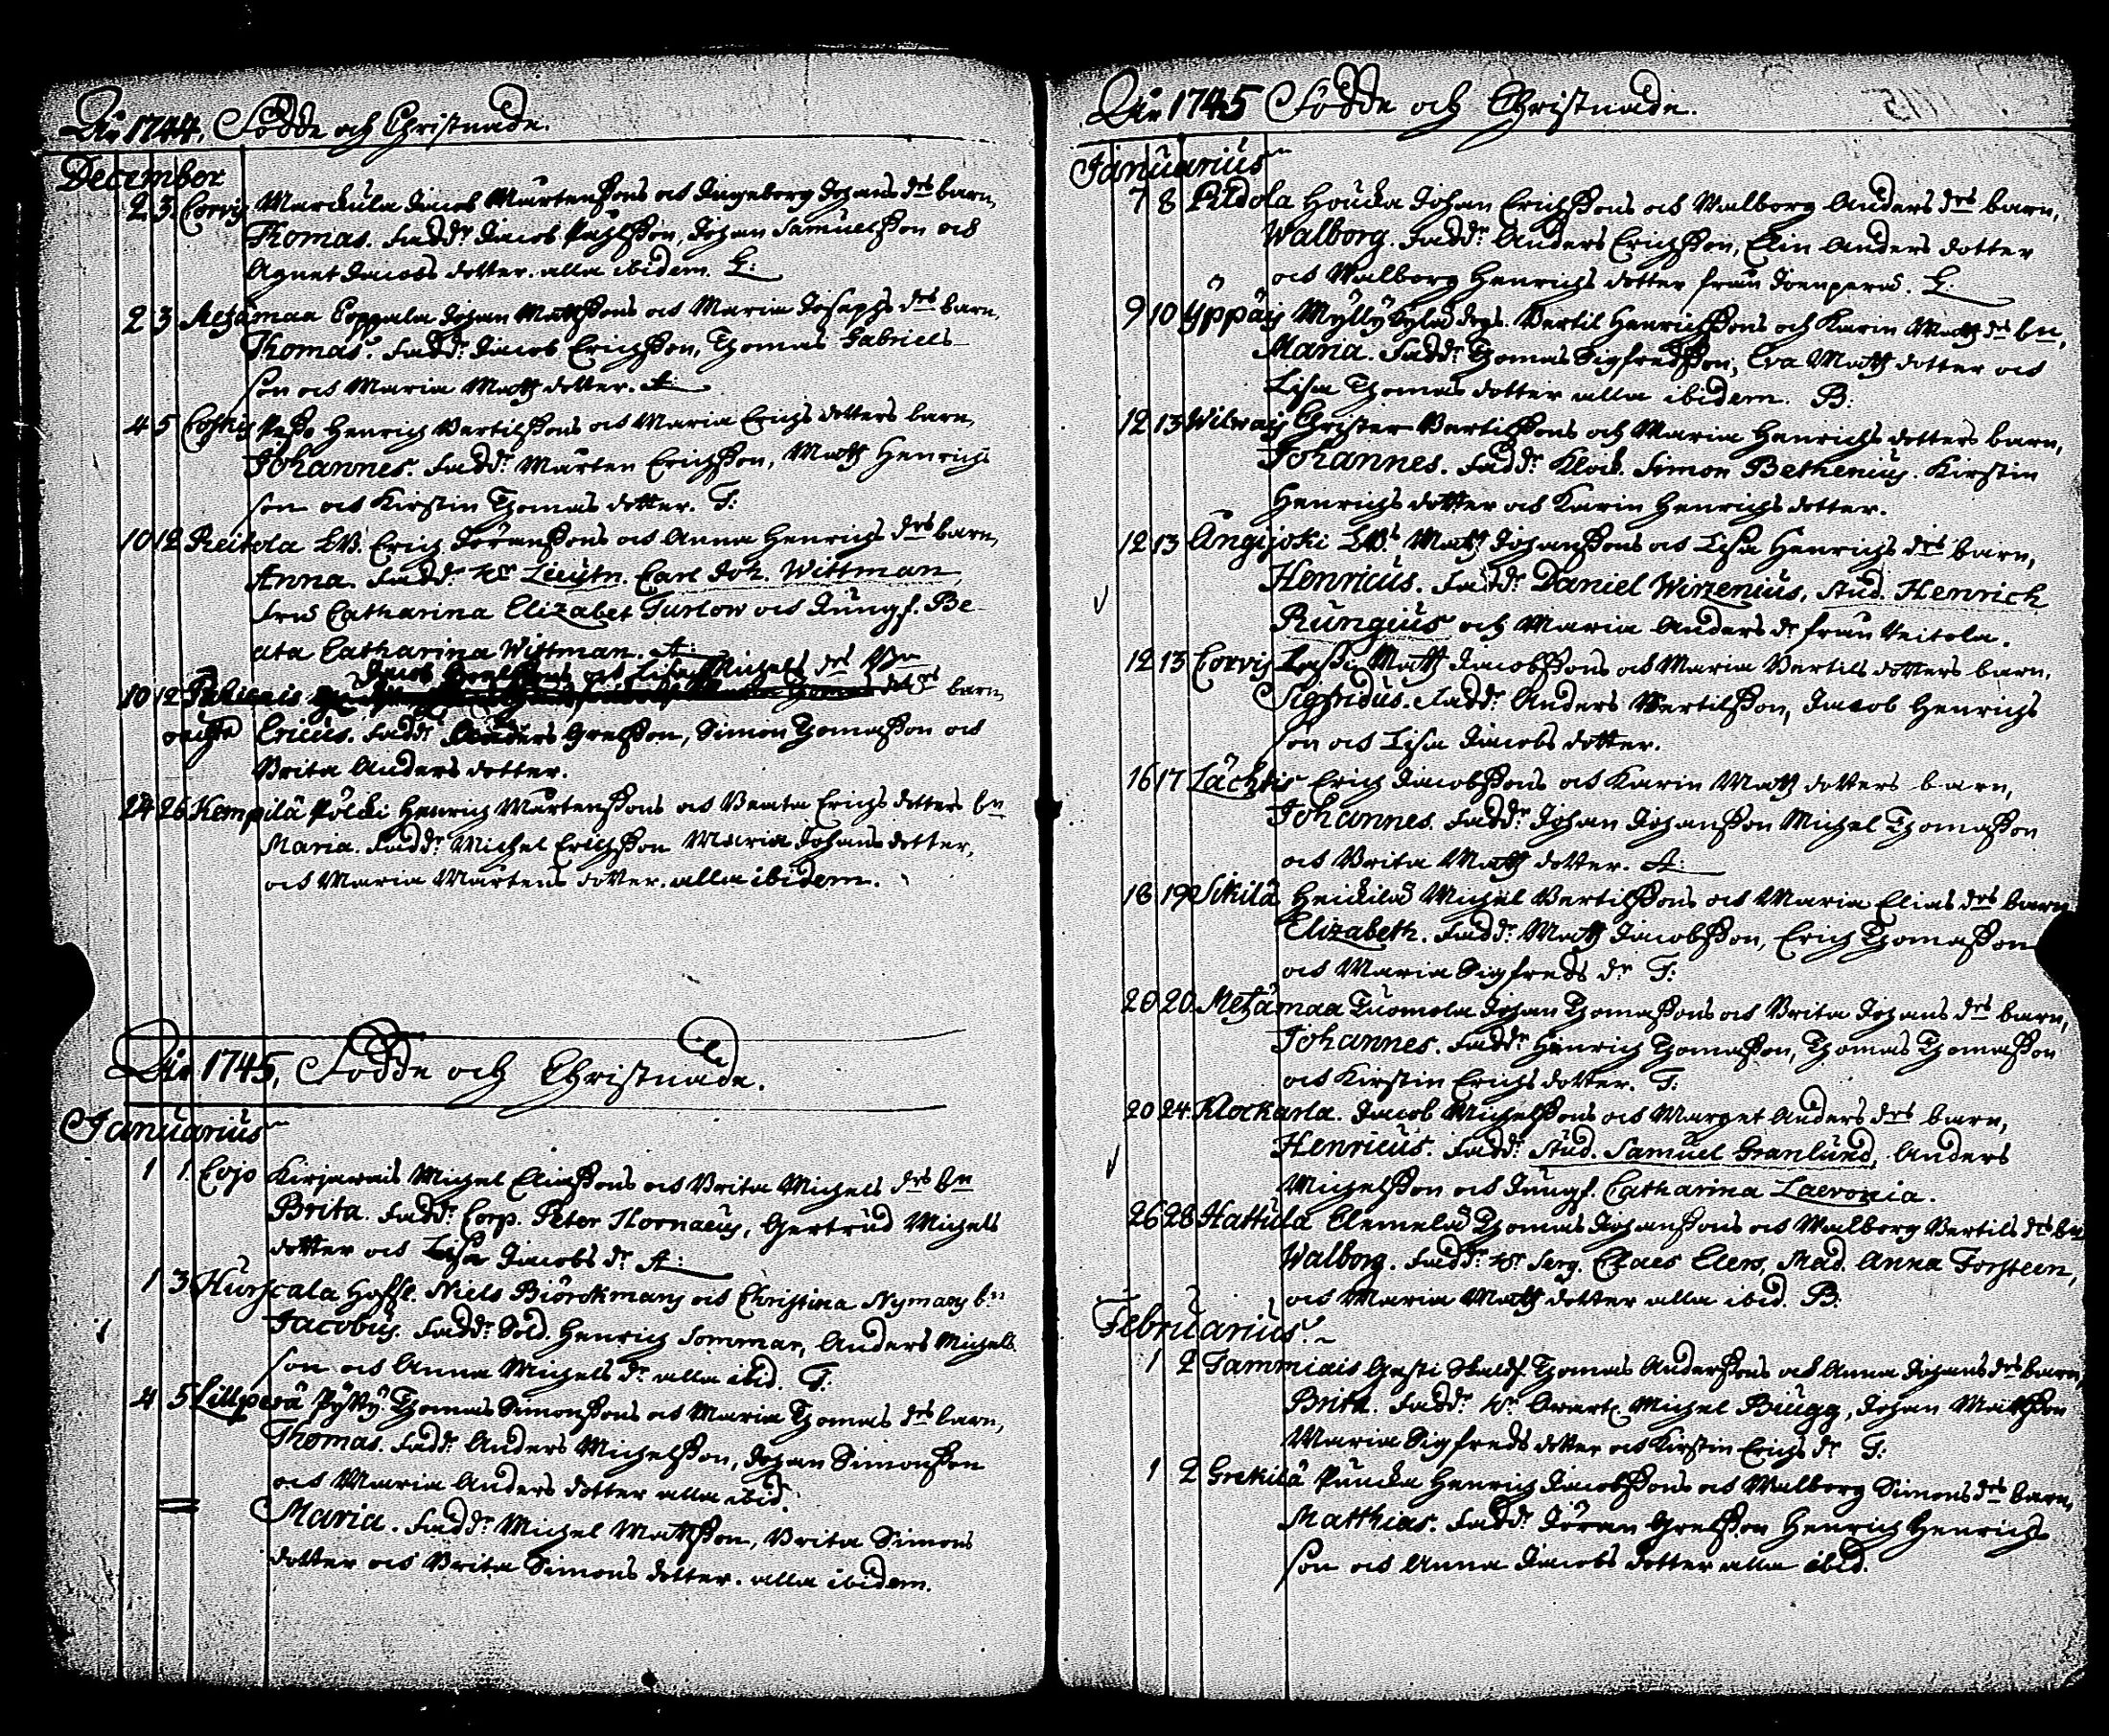 År 1744, Födde och Christnade.
December
2 3 Corvis Marckula Jacob Mårtenssons och Ingeborg Johans drs barn,
Thomas. Faddr Jacob Påhlsson, Johan Samuelsson och
Agnet Jacobs dotter. alla ibidem. L:
2 3 Metzämaa Coppala Johan Mattssons och Maria Josephs drs barn,
Thomas. Faddr Jacob Erichsson, Thomas Gabriels
son och Maria Matts dotter. A:
4 5 Coskis Henrich Bertilssons och Maria Erichs dotters barn,
Johannes. Faddr Mårten Erichsson, Matts Henrichs
son och Kirstin Thomas dotter. T:
10 12 Reitola Erich Göranssons och Anna Henrichs drs barn,
Anna. Faddr Hr Lieutn. Carl Joh. Wittman,
Fru Catharina Elizabet Turlow och Jungf. Be-
ata Catharina Wittman. A:
Jacob och Lisa Michels drs Bn
10 12 barn,
Ericus. Faddr Anders Grelsson, Simon Thomasson och
Brita Anders dotter.
24 26 Kempilä Pölcki Henrich Mårtenssons och Beata Erichs dotters bn
Maria. Faddr Michel Erichsson Maria Johans dotter,
och Maria Mårtens dotter. alla ibidem.
År 1745, Födde och Christnade.
Januarius
1 1. Cojo Kirjavais Michel Eliassons och Brita Michels drs bn
Brita. Faddr Corp. Peter Hornaeus, Gertrud Michels
dotter och Lisa Jacobs dr A:
1 3 Hurscala Niels Biörckmans och Christina Nymans bn
Jacobus. Faddr Sold. Henrich Sommar, Anders Michels
son och Anna Michels dr alla ibid. T:
4 5 Lillperä Pytty Thomas Simonssons och Maria Thomas drs barn,
Thomas. Faddr Anders Michelsson, Johan Simonsson
och Maria Anders dotter alla ibid.
Maria. Faddr Michel Mattsson, Brita Simons
dotter och Brita Simons dotter. alla ibidem.
År 1745 Födde och Christnade.
Januarius
7 8 Pildola Houcka Johan Erichssons och Walborg Anders drs barn,
Walborg. Faddr Anders Erichsson, Elin Anders dotter
och Walborg Henrichs dotter från Joenperä. L:
9 10 Yppäis Mylly Bertil Henrichssons och Karin Matts drs bn,
Maria. Faddr Thomas Sigfredsson, Eva Matts dotter och
Lisa Thomas dotter alla ibidem. B:
12 13 Wilvais Christer Bertilssons och Maria Henrichs dotters barn,
Johannes. Faddr Klock. Simon Bethenius. Kirstin
Henrichs dotter och Karin Henrichs dotter.
12 13 Ångijoki Matts Johanssons och Lisa Henrichs drs barn,
Henricus. Faddr Daniel Wirzenius, Stud. Henrich
Rungius och Maria Anders dr från Reitola.
12 13 Corvis Lassi Matts Jacobssons och Maria Bertils dotters barn,
Sigfridus. Faddr Anders Bertilsson, Jacob Henrichs
son och Lisa Jacobs dotter.
16 17 Lächtis Erich Jacobssons och Karin Matts dotters barn,
Johannes. Faddr Johan Johansson Michel Thomasson
och Brita Matts dotter. A:
18 19 Sikilä Heickilä Michel Bertilssons och Maria Elias drs barn
Elizabeth. Faddr Matts Jacobsson, Erich Thomasson
och Maria Sigfreds dr T:
20 20 Metzämaa Tuomola Johan Thomassons och Brita Johans drs barn,
Johannes. Faddr Hinrich Thomasson, Thomas Thomasson
och Kirstin Erichs dotter. T:
20 24 Klockarla. Jacob Michelssons och Marget Anders drs barn,
Henricus. Faddr Stud. Samuel Granlund, Anders
Michelsson och Jungf. Catharina Laevonia.
26 28 Hattula Clemelä Thomas Johanssons och Walborg Bertils drs bn
Walborg. Faddr Hr Serg. Claes Elers, Mad. Anna Forsteen,
och Maria Matts dotter alla ibid. B:
Februarius
1 2 Tammiais Thomas Anderssons och Anna Johans drs barn,
Brita. Faddr Hr Qvart. Michel Biugg, Johan Mattsson
Maria Sigfreds dotter och Kirstin Erichs dr T:
1 2 Grekilä Puncka Henrich Jacobssons och Walborg Simons drs barn,
Matthias. Faddr Jöran Grelsson Henrich Henrichs
son och Anna Jacobs dotter alla ibid.